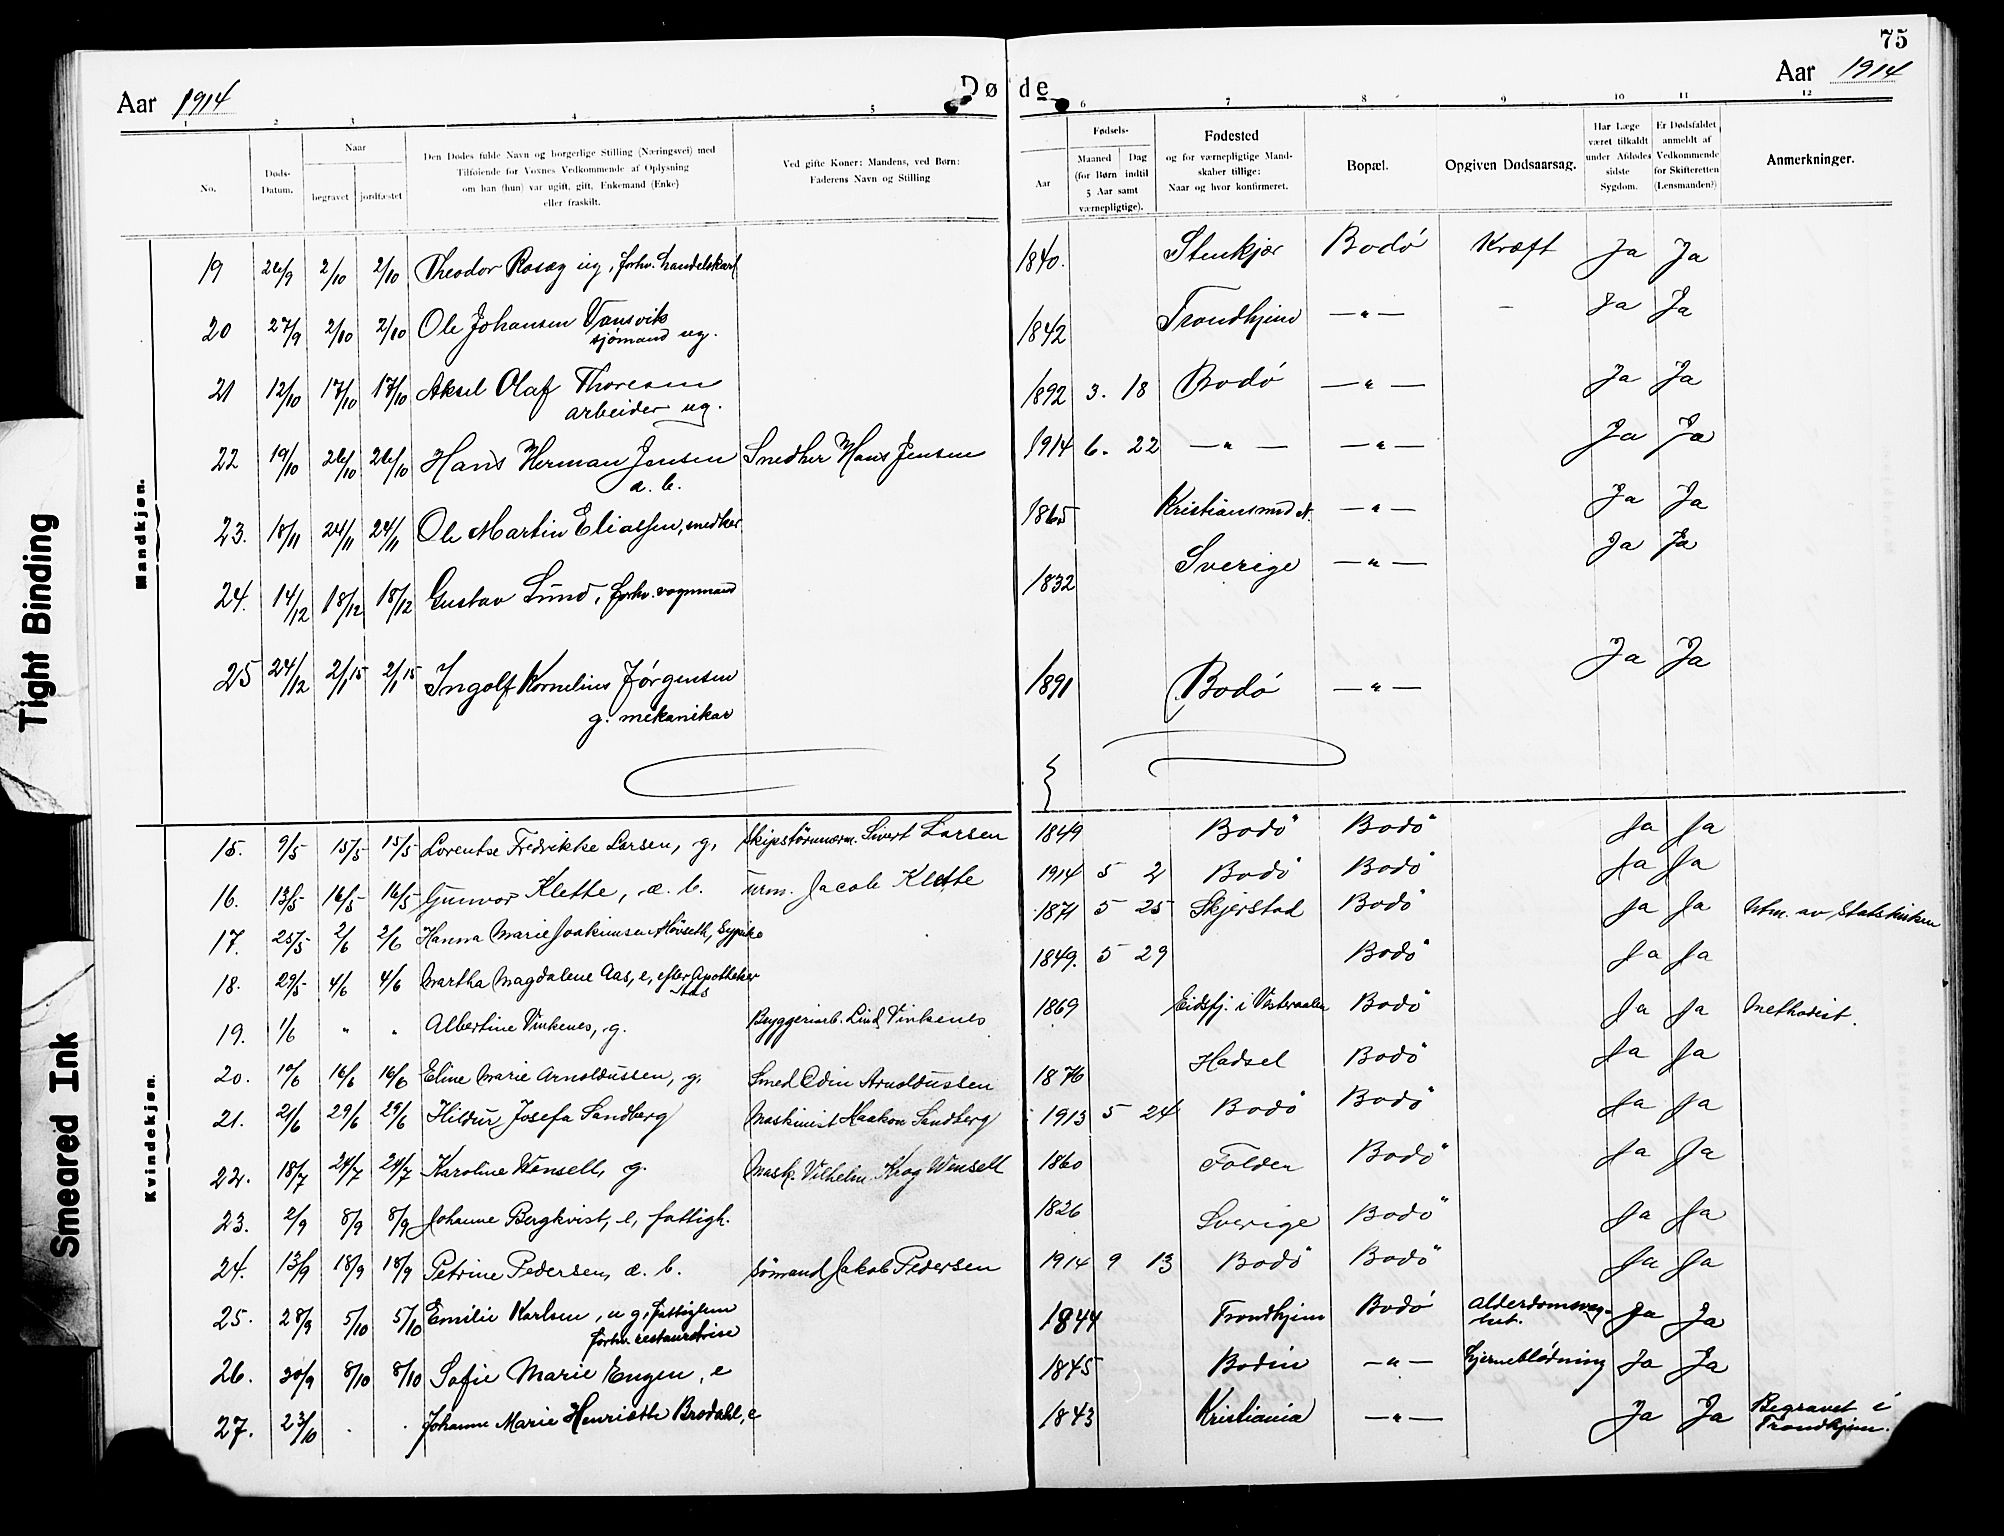 75
Aar 1914
Døde
Aar 1914
1 2 3 4 5 6 7 8 9 10 11 12
No.
Døds-
Datum.
Naar
begravet jordfæstet
Den Dødes fulde Navn og borgerlige Stilling (Næringsvei) med
Tilføiende for Voxnes Vedkommende af Oplysning
om han (hun) var ugift, gift, Enkemand (Enke)
eller fraskilt.
Ved gifte Koner: Mandens, ved Børn:
Faderens Navn og Stilling
Aar
Fødsels-
Maaned Dag
(for Børn indtil
5 Aar samt
værnepligtige).
Fødested
og for værnepligtige Mand-
skaber tillige:
Naar og hvor konfirmeret.
Bopæl.
Opgiven Dødsaarsag.
Har Læge
været tilkaldt
under Afdødes
sidste
Sygdom.
Er Dødsfaldet
anmeldt af
Vedkommende
for Skifteretten
(Lensmanden?)
Anmerkninger.
Mandkjøn.
19 26/9 2/10 2/10 Theodor Rosag ug, forhv. handelskarl 1840. Stenkjær Bodö Kræft Ja Ja
20 27/9 2/10 2/10 Ole Johansen Vansvik 1842 Trondhjem —"— - Ja Ja
sjömand ug.
21 12/10 17/10 17/10 Aksel Olaf Thoresen 1892 3. 18 Bodö —"— Ja Ja
arbeider ug.
22 19/10 26/10 26/10 Hans Herman Jensen Snedker Hans Jensen 1914 6. 22 —"— —"— Ja Ja
æ. b.
23. 18/11 24/11 24/11 Ole Martin Eliassen, snedker 1865 Kristiansund N. —"— Ja Ja
24. 14/12 18/12 18/12 Gustav Lund, forhv. vognmand 1832 Sverige —"— Ja Ja
25 24/12 2/1 15 2/1 15 Ingolf Kornelius Jörgensen 1891 Bodö —"— Ja Ja
g. mekanikar
Kvindekjøn.
15. 9/5 15/5 15/5 Lorentse Fredrikke Larsen, g. Skipstömmerm. Sivert Larsen 1849 Bodö Bodö Ja Ja
16. 13/5 16/5 16/5 Gunvor Klette, æ. b. Urm. Jacob Klette 1914 5 2 Bodö Bodö Ja Ja
17. 25/5 2/6 2/6 Hanna Marie Joakimsen Hövseth, Sypike 1871 5 25 Skjerstad Bodö Ja Ja Utm. av Statskirken
18. 29/5 4/6 4/6 Martha Magdalene Aas, e, efter Apotheker 1849. 5 29 Bodö Ja Ja
Aas
19. 1/6 " " Albertine Vinkenes, g. Bryggeriarb. Lind Vinkenes 1869 Eidsfj. i Vesteraalen Bodö Ja Ja Methodist.
20. 10/6 16/6 16/6 Eline Marie Arnoldussen, g. Smed Odin Arnoldussen 1876 Hadsel Bodö Ja Ja
21. 21/6 29/6 29/6 Hildur Josefa Sandberg Maskinist Haakon Sandberg 1913 5 24 Bodö Bodö Ja Ja
22. 18/7 24/7 24/7 Karoline Wensell, g. Mask. Vilhelm Krog Wensell 1860 Folden Bodö Ja Ja
23. 2/9 8/9 8/9 Johanne Bergkvist, e, fattigh. 1826 Sverige Bodö Ja Ja
24. 13/9 18/9 18/9 Petrine Pedersen, æ. b. Sömand Jakob Pedersen 1914 9 13 Bodö Bodö Ja Ja
25. 28/9 5/10 5/10 Emilie Karlsen, ug, fattiglem 1844 Trondhjem Bodö Alderdomsvag- Ja Ja
forhv. restauratrise het.
26. 30/9 8/10 8/10 Sofie Marie Engen, e 1845 Bodin —"— Hjerneblödning Ja Ja
27. 23/10 . . Johanne Marie Henriette Brodahl, e 1843 Kristiania —"— Ja Ja Begravet i
Trondhjem.
Tight Binding
Smeared Ink